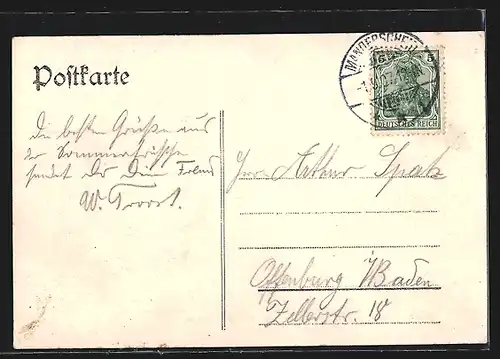 Postkarte
MANDERSCHEID
5 5
DEUTSCHES REICH
Die besten Grüße aus
der Sommerfrische
sendet Dir Dein Freund
W.
Herr Arthur Spatz
Offenburg i/Baden
Zellerstr. 18